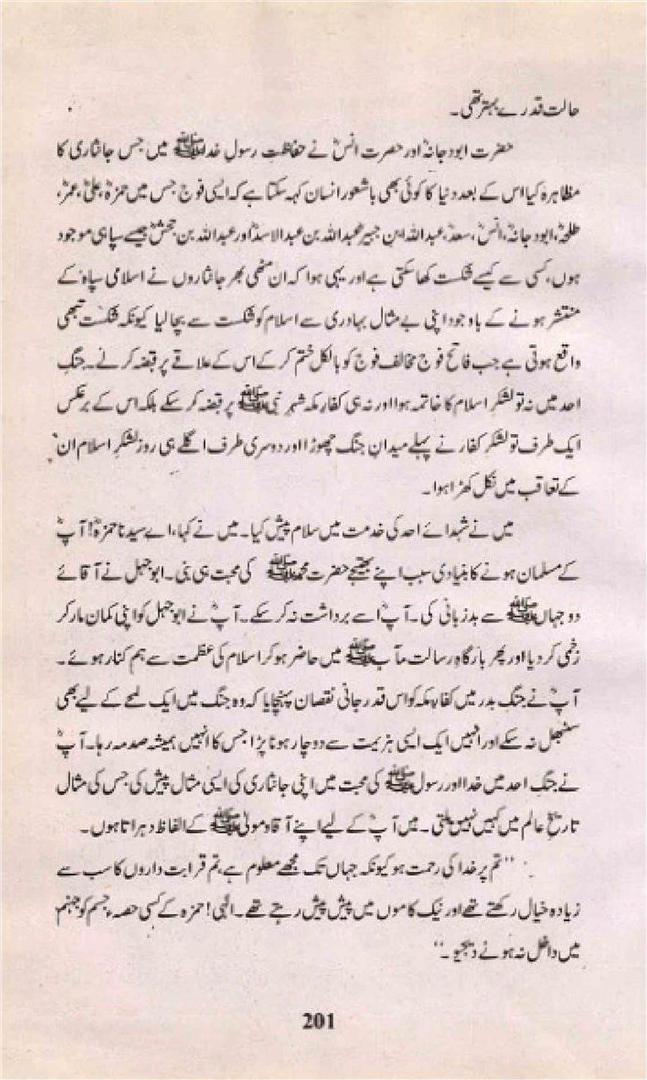 حالت قدرے بہتر تھی۔
حضرت ابودجانہؓ اور حضرت انسؓ نے حفاظت رسول خداﷺ میں جس جانثاری کا
مظاہرہ کیا اس کے بعد دنیا کا کوئی بھی باشعور انسان کہہ سکتا ہے کہ ایسی فوج جس میں حمزہؓ، علیؓ، عمرؓ،
طلحہؓ، ابودجانہؓ، انسؓ، سعدؓ، عبداللہ ابن جبیرؓ عبداللہ بن عبدالاسدؓ اور عبداللہ بن جحشؓ جیسے سپاہی موجود
ہوں، کسی سے کیسے شکست کھا سکتی ہے اور یہی ہوا کہ ان مٹھی بھر جانثاروں نے اسلامی سپاہ کے
منتشر ہونے کے باوجود اپنی بے مثال بہادری سے اسلام کو شکست سے بچا لیا کیونکہ شکست تبھی
واقع ہوتی ہے جب فاتح فوج مخالف فوج کو بالکل ختم کر کے اس کے علاقے پر قبضہ کر لے۔ جنگِ
احد میں نہ تو لشکر اسلام کا خاتمہ ہوا اور نہ ہی کفار مکہ شہر نبیﷺ پر قبضہ کر سکے بلکہ اس کے برعکس
ایک طرف تو لشکر کفار نے پہلے میدانِ جنگ چھوڑا اور دوسری طرف اگلے ہی روز لشکرِ اسلام ان
کے تعاقب میں نکل کھڑا ہوا۔
میں نے شہدائے احد کی خدمت میں سلام پیش کیا۔ میں نے کہا، اے سیدنا حمزہؓ! آپؓ
کے مسلمان ہونے کا بنیادی سبب اپنے بھتیجے حضرت محمدﷺ کی محبت ہی بنی۔ ابوجہل نے آقائے
دو جہاںﷺ سے بدزبانی کی۔ آپؓ اسے برداشت نہ کر سکے۔ آپؓ نے ابوجہل کو اپنی کمان مار کر
زخمی کر دیا اور پھر بارگاہِ رسالت مآبﷺ میں حاضر ہو کر اسلام کی عظمت سے ہم کنار ہوئے۔
آپؓ نے جنگِ بدر میں کفار مکہ کو اس قدر جانی نقصان پہنچایا کہ وہ جنگ میں ایک لمحے کے لیے بھی
سنبھل نہ سکے اور انہیں ایک ایسی ہزیمت سے دوچار ہونا پڑا جس کا انہیں ہمیشہ صدمہ رہا۔ آپؓ
نے جنگِ احد میں خدا اور رسولﷺ کی محبت میں اپنی جانثاری کی ایسی مثال پیش کی جس کی مثال
تاریخِ عالم میں کہیں نہیں ملتی۔ میں آپؓ کے لیے اپنے آقا و مولیٰﷺ کے الفاظ دہراتا ہوں۔
”تم پر خدا کی رحمت ہو کیونکہ جہاں تک مجھے معلوم ہے، تم قرابت داروں کا سب سے
زیادہ خیال رکھتے تھے اور نیک کاموں میں پیش پیش رہتے تھے۔ الٰہی! حمزہ کے کسی حصہء جسم کو جہنم
میں داخل نہ ہونے دیجیو۔“
201